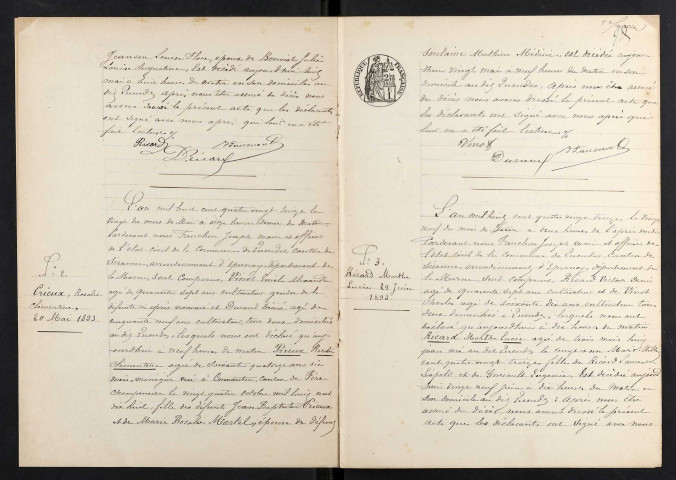 Louise Augustine est décédé aujourd'hui vingt
mai à une heure du matin en son domicile au
dit Queudes, après nous être assuré du décès nous
avons dressé le présent acte que les déclarants
ont signé avec nous après que leur en a été
fait lecture
Ricard
Ricard
L'an mil huit cent quatre vingt treize le
vingt du mois de Mai à onze heures du matin
Pardevant nous Fauchon Joseph maire et officier
de l'état civil de la Commune de Queudes, canton de
Sézanne, arrondissement d'Épernay, département de
la Marne, sont comparus, Vinot
âgé de quarante sept ans cultivateur
défunte ci après nommée et Durand âgé de
cinquante neuf ans cultivateur, tous deux domiciliés
au dit Queudes, lesquels nous ont déclaré qu'au
jourd'hui à neuf heures du matin Prieux Rosalie
Clémentine âgée de soixante quatorze ans six
mois, ménagère, née à Connantre, canton de Fère
Champenoise le vingt quatre octobre mil huit cent
dix huit, fille des défunts Jean Baptiste Prieux
et de Marie Rosalie Martel, épouse du défunt
N° 2.
Prieux, Rosalie
Clémentine
20 Mai 1893.
RÉPUBLIQUE FRANÇAISE
est décédée aujour
d'hui vingt mai à neuf heures du matin en son
domicile au dit Queudes. Après nous être assuré
du décès nous avons dressé le présent acte que
les déclarants ont signé avec nous après que
leur en a été fait lecture
Vinot
Durand
L'an mil huit cent quatre vingt treize, le vingt
neuf du mois de Juin à deux heures de l'après midi
Pardevant nous Fauchon Joseph maire et officier de
l'état civil de la commune de Queudes, canton de
Sézanne arrondissement d'Épernay, département de
la Marne, sont comparus, Ricard
âgé de quarante ans cultivateur et de Vinot
Charles âgé de soixante dix ans cultivateur tous
deux domiciliés à Queudes, lesquels nous ont
déclaré qu'aujourd'hui à dix heures du matin
Ricard Marthe Lucie âgée de trois mois huit
jours née au dit Queudes, le vingt un Mars mil huit
cent quatre vingt treize, fille de Ricard
Léopold et de Eugénie est décédée aujourd'
hui vingt neuf juin à dix heures du matin en
son domicile au dit Queudes. Après nous être
assuré du décès, nous avons dressé le présent
acte que les déclarants ont signé avec nous
N° 3.
Ricard Marthe
Lucie 29 Juin
1893